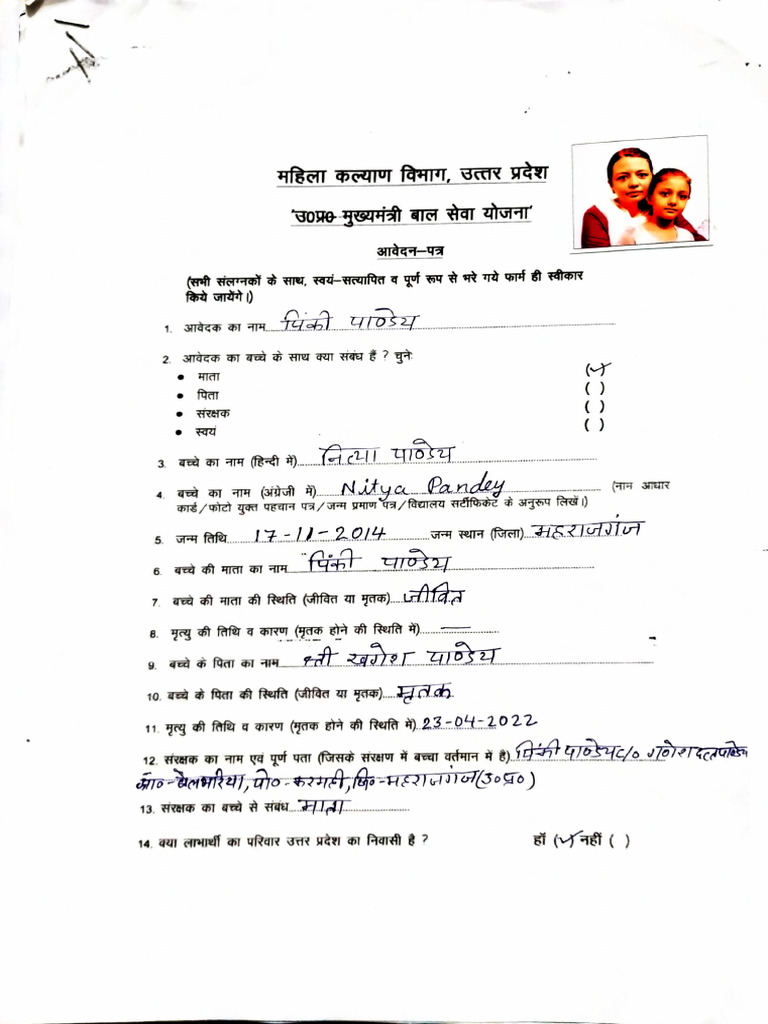 महिला कल्याण विभाग, उत्तर प्रदेश
'उ0प्र0 मुख्यमंत्री बाल सेवा योजना'
आवेदन–पत्र
(सभी संलग्नकों के साथ, स्वयं–सत्यापित व पूर्ण रूप से भरे गये फार्म ही स्वीकार
किये जायेंगे।)
1. आवेदक का नाम पिंकी पाण्डेय
2. आवेदक का बच्चे के साथ क्या संबंध हैं ? चुनेः
• माता (✓)
• पिता ( )
• संरक्षक ( )
• स्वयं ( )
3. बच्चे का नाम (हिन्दी में) नित्या पाण्डेय
4. बच्चे का नाम (अंग्रेजी में) Nitya Pandey (नाम आधार
कार्ड/फोटो युक्त पहचान पत्र/जन्म प्रमाण पत्र/विद्यालय सर्टीफिकेट के अनुरूप लिखें।)
5. जन्म तिथि 17-11-2014 जन्म स्थान (जिला) महराजगंज
6. बच्चे की माता का नाम पिंकी पाण्डेय
7. बच्चे की माता की स्थिति (जीवित या मृतक) जीवित
8. मृत्यु की तिथि व कारण (मृतक होने की स्थिति में) —
9. बच्चे के पिता का नाम श्री खगेश पाण्डेय
10. बच्चे के पिता की स्थिति (जीवित या मृतक) मृतक
11. मृत्यु की तिथि व कारण (मृतक होने की स्थिति में) 23-04-2022
12. संरक्षक का नाम एवं पूर्ण पता (जिसके संरक्षण में बच्चा वर्तमान में है) पिंकी पाण्डेय c/o गणेश दत्त पाण्डेय
ग्रा०-बेलभरिया, पो०-करमही, जि०-महराजगंज (उ०प्र०)
13. संरक्षक का बच्चे से संबंध माता
14. क्या लाभार्थी का परिवार उत्तर प्रदेश का निवासी है ? हाँ (✓) नहीं ( )